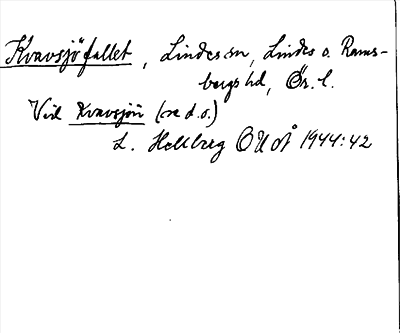 Kvavsjöfallet, Lindes sn, Lindes o. Rams-
bergs hd, Ör. l.
Vid Kvavsjön (se d.o.)
L. Hellberg OUÅ 1944:42